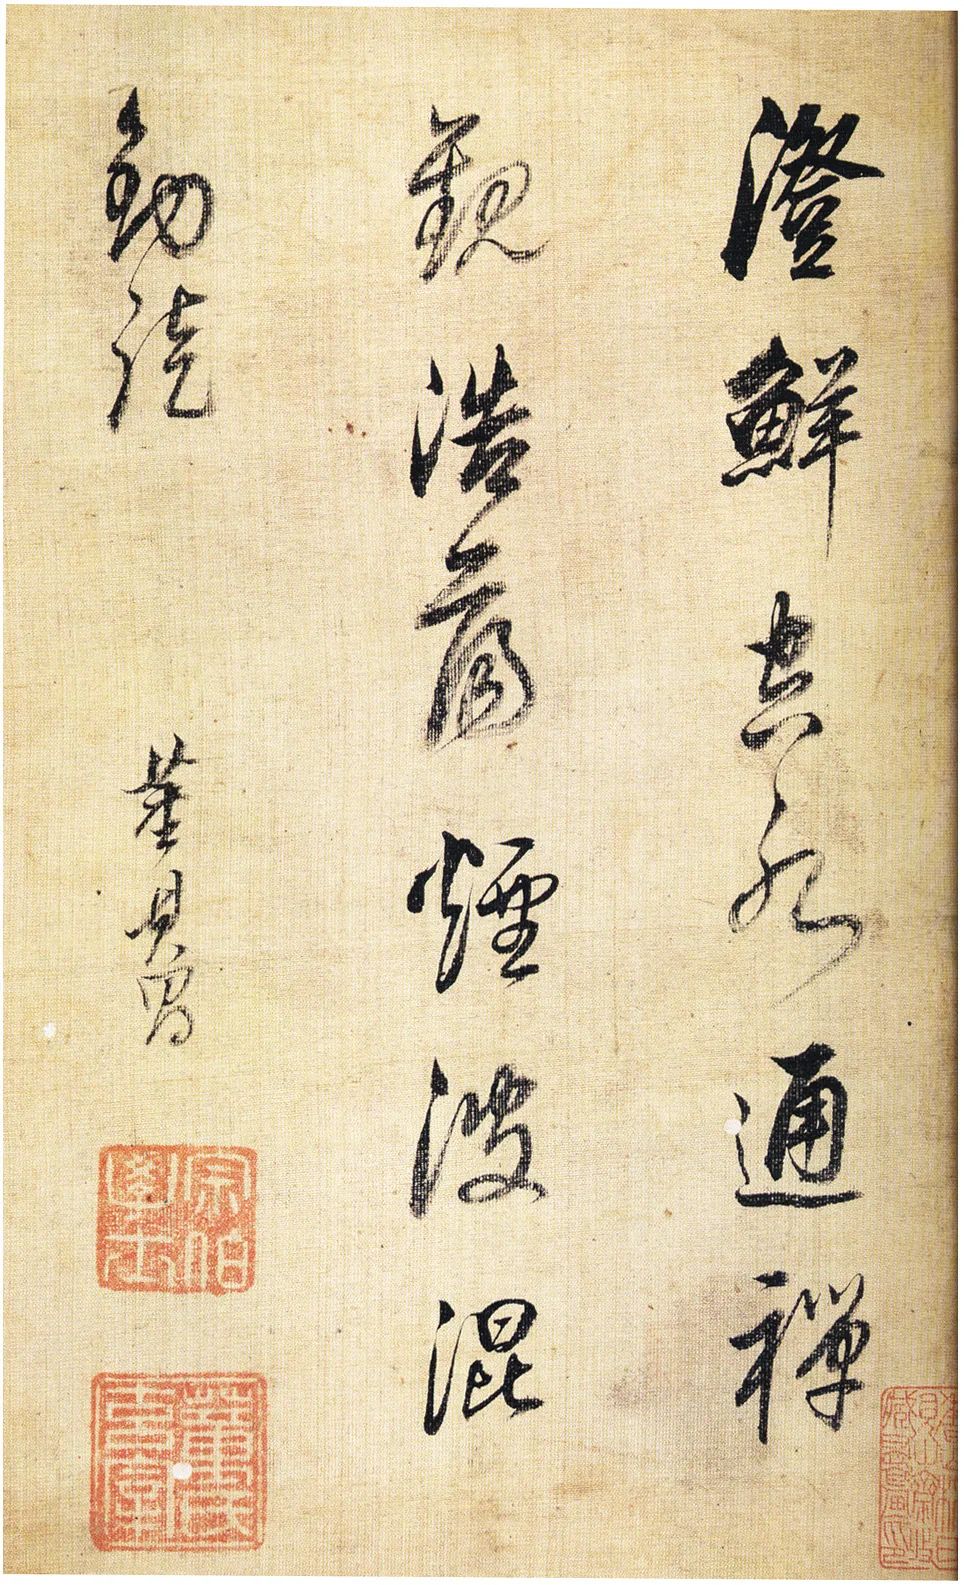 澄鮮空水通禪
觀浩蕩煙波混
釣徒 董其昌
宗伯學士
董氏玄宰